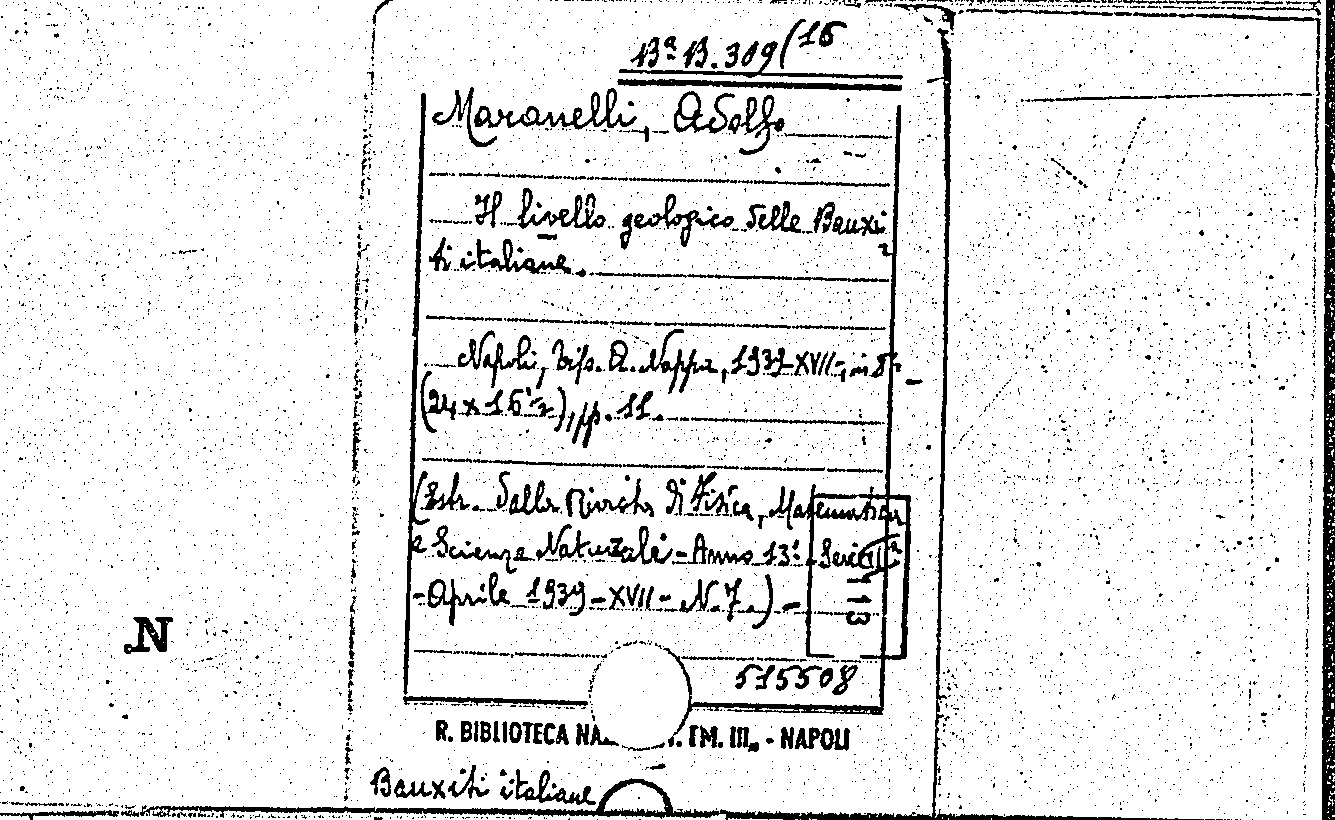 Bª B. 309 (16
Maranelli, Adolfo
Il livello geologico delle Bauxi
ti italiane.
Napoli, Tip. A. Nappa, 1939-XVII-, in 8º
(24 x 16½), pp. 11.
(Estr. dalla Rivista di Fisica, Matematica
e Scienze Naturali - Anno 13º - Serie IIª
- Aprile 1939 - XVII - N. 7.) -
.N
515508
R. BIBLIOTECA EM. III„ - NAPOLI
Bauxiti italiane